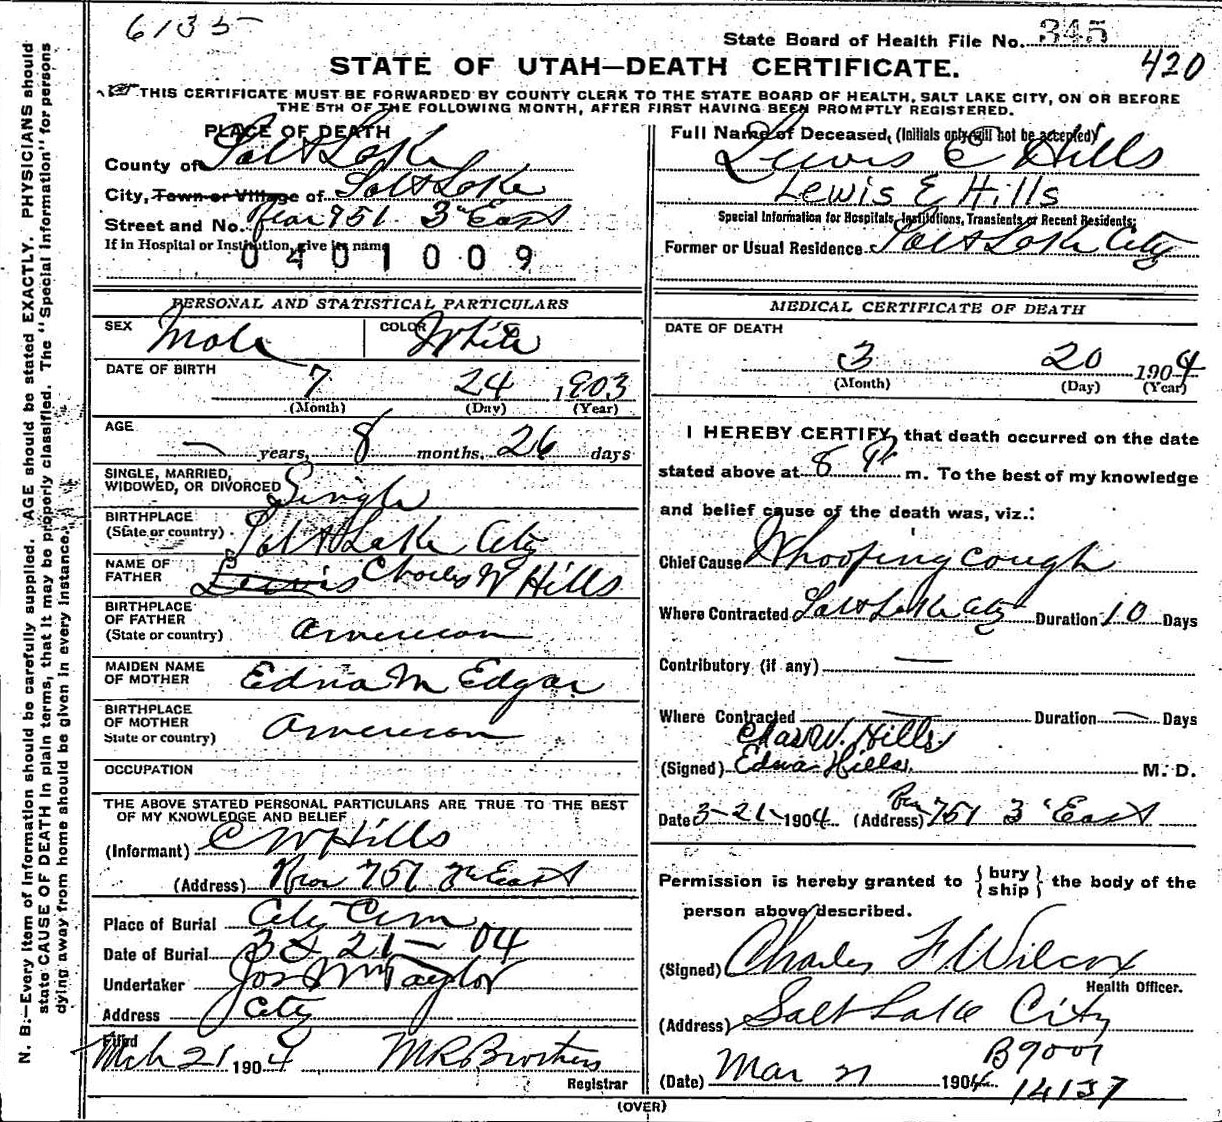 6135
State Board of Health File No. 345
420
STATE OF UTAH—DEATH CERTIFICATE.
THIS CERTIFICATE MUST BE FORWARDED BY COUNTY CLERK TO THE STATE BOARD OF HEALTH, SALT LAKE CITY, ON OR BEFORE
THE 5TH OF THE FOLLOWING MONTH, AFTER FIRST HAVING BEEN PROMPTLY REGISTERED.
PLACE OF DEATH
County of Salt Lake
City, Town or Village of Salt Lake
Street and No. Rear 751 3d East
If in Hospital or Institution, give its name
0401009
Full Name of Deceased, (Initials only will not be accepted)
Lewis E Hills
Lewis E Hills
Special Information for Hospitals, Institutions, Transients or Recent Residents;
Former or Usual Residence Salt Lake City
PERSONAL AND STATISTICAL PARTICULARS
SEX Male COLOR White
DATE OF BIRTH
7 24 1903
(Month) (Day) (Year)
AGE
— years, 8 months, 26 days
SINGLE, MARRIED,
WIDOWED, OR DIVORCED Single
BIRTHPLACE
(State or country) Salt Lake City
NAME OF
FATHER Lewis Charles W Hills
BIRTHPLACE
OF FATHER
(State or country) American
MAIDEN NAME
OF MOTHER Edna M Edgar
BIRTHPLACE
OF MOTHER
State or country) American
OCCUPATION
THE ABOVE STATED PERSONAL PARTICULARS ARE TRUE TO THE BEST
OF MY KNOWLEDGE AND BELIEF
(Informant) C W Hills
(Address) Rear 751 3d East
Place of Burial City Cem
Date of Burial 3 21 — 04
Undertaker Jos Wm Taylor
Address City
Filed
Mch 21 1904 M R Brothers
Registrar
MEDICAL CERTIFICATE OF DEATH
DATE OF DEATH
3 20 1904
(Month) (Day) (Year)
I HEREBY CERTIFY, that death occurred on the date
stated above at 8 P m. To the best of my knowledge
and belief cause of the death was, viz.:
Chief Cause Whooping cough
Where Contracted Salt Lake City Duration 10 Days
Contributory (if any) —
Where Contracted — Duration — Days
Chas W. Hills
(Signed) Edna Hills. M. D.
Date 3-21-1904 (Address) Rear 751 3d East
Permission is hereby granted to { bury } the body of the
{ ship }
person above described.
(Signed) Charles F. Wilcox
Health Officer.
(Address) Salt Lake City
B9001
(Date) Mar 21 1904
14137
(OVER)
N. B.—Every item of Information should be carefully supplied. AGE should be stated EXACTLY. PHYSICIANS should
state CAUSE OF DEATH in plain terms, that it may be properly classified. The "Special Information" for persons
dying away from home should be given in every instance.